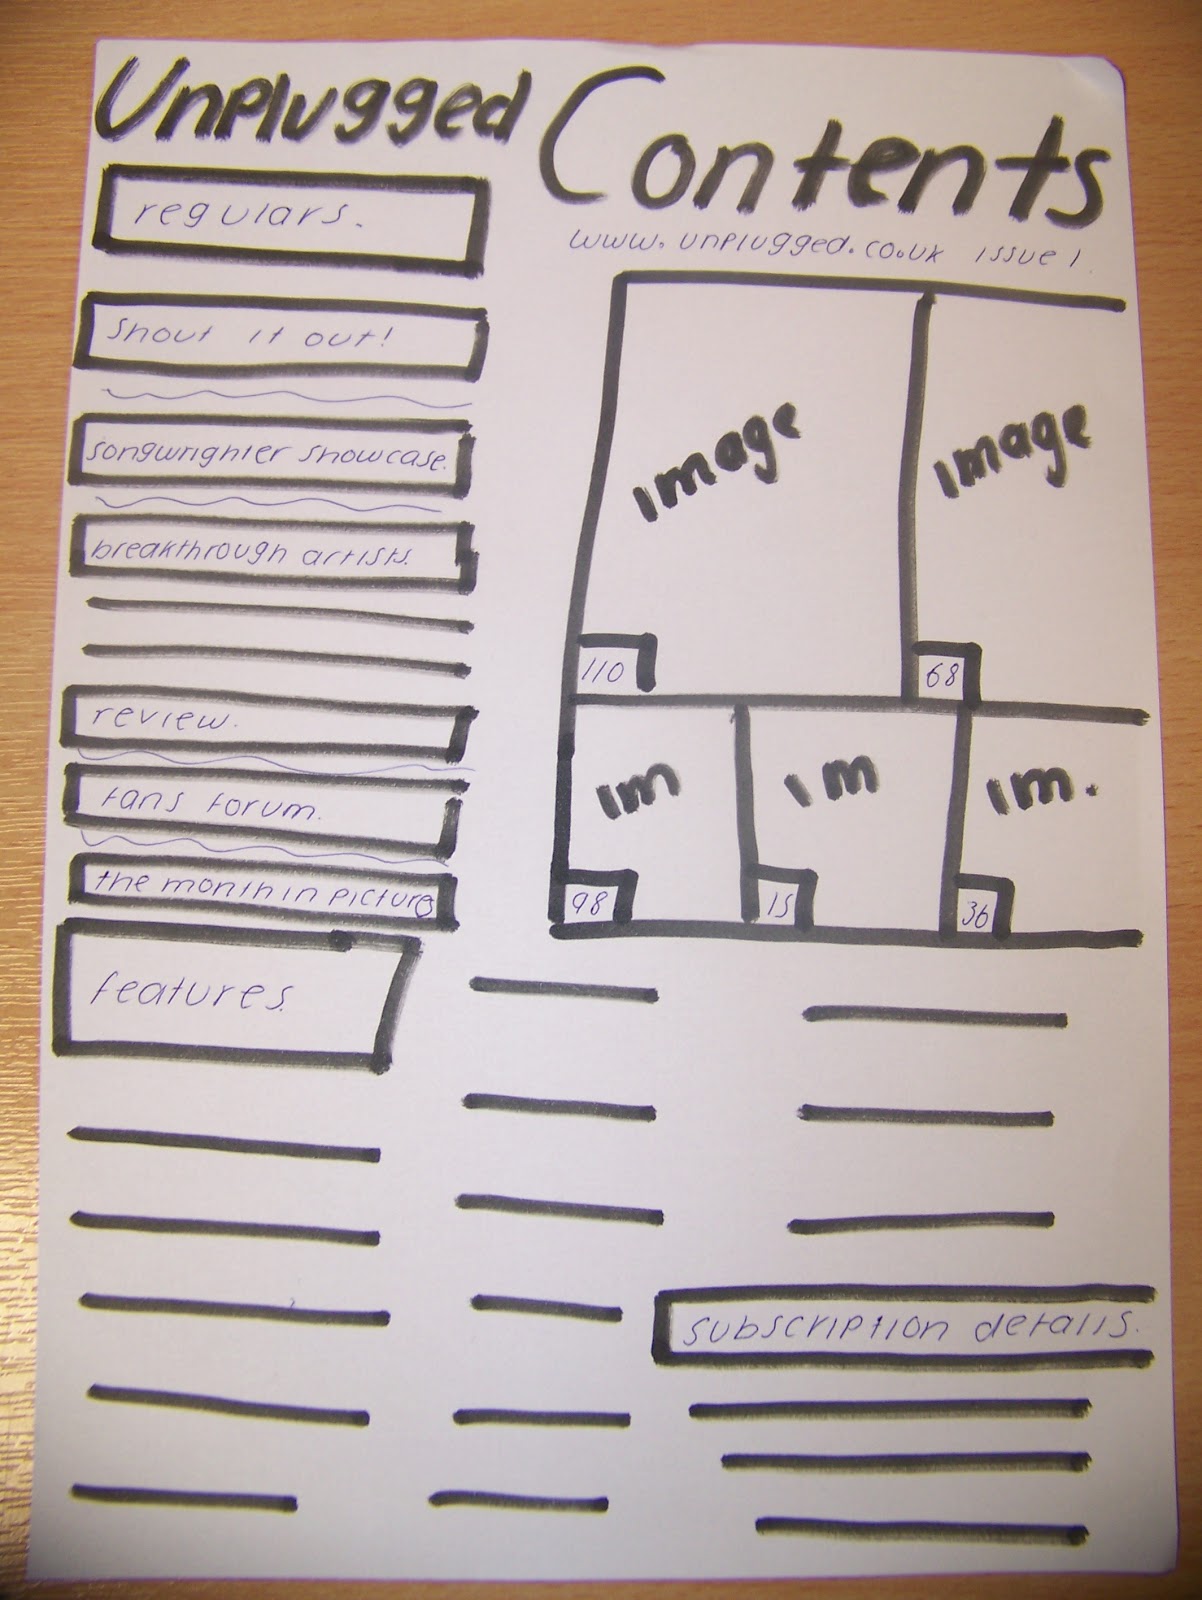 Unplugged Contents
www.unplugged.co.uk issue 1
regulars.
shout it out!
songwrighter showcase.
breakthrough artists.
review.
fans forum.
the month in picture
features.
image
image
110
68
im
im
im.
98
15
36
subscription details.